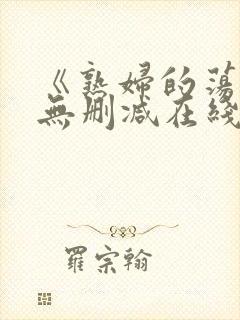 《熟婦的蕩
無刪減在綫
羅宗翰